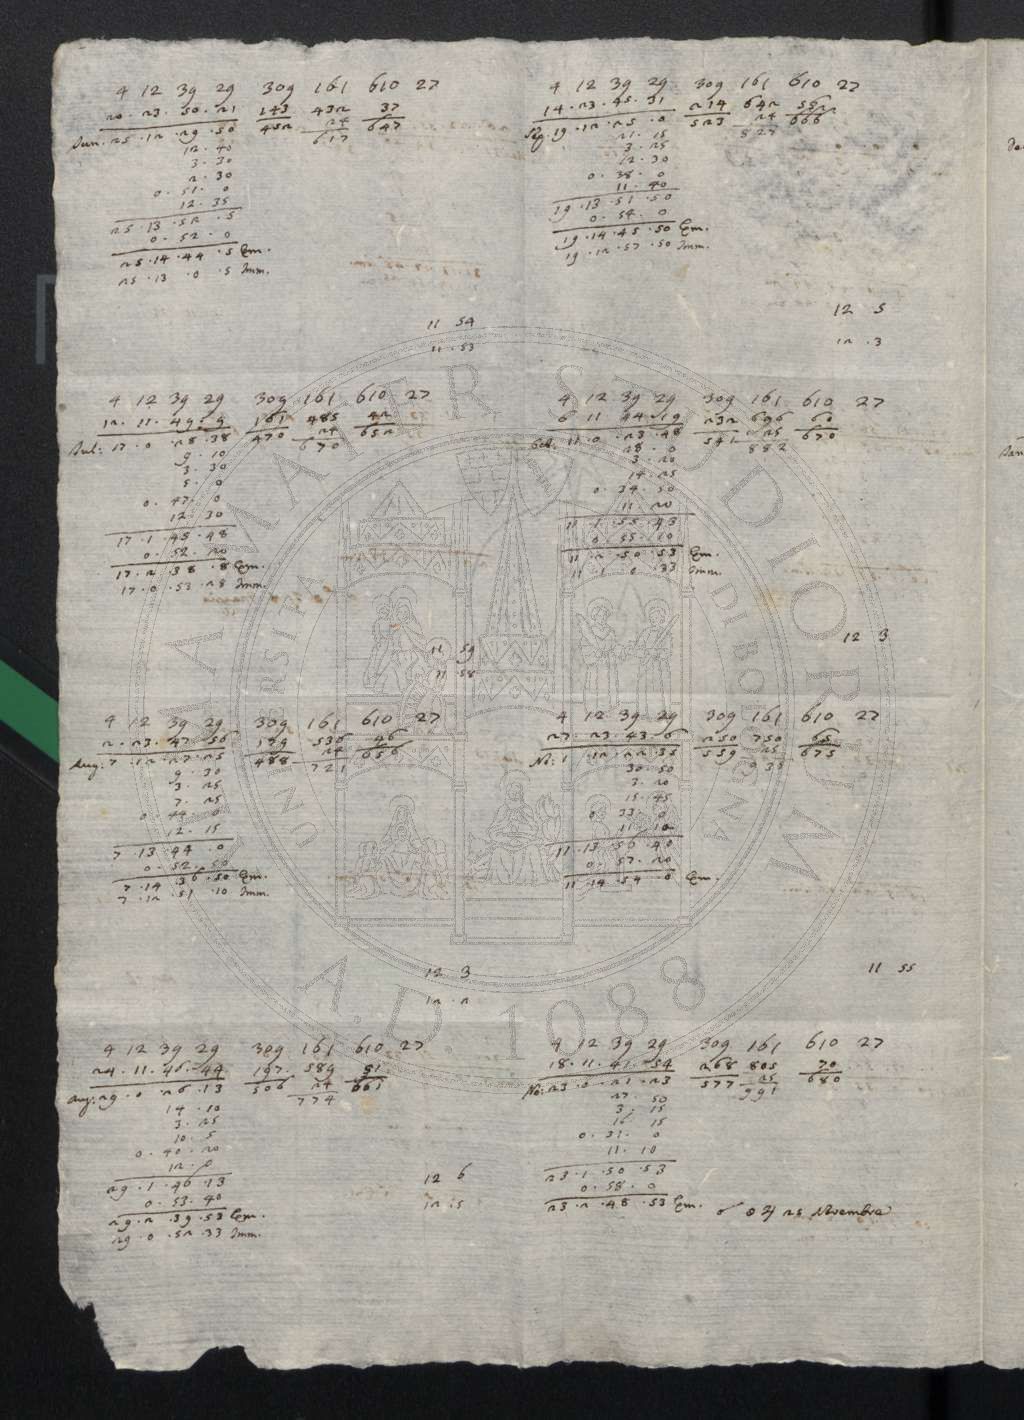 4 12 39 29 309 161 610 27
20 · 23 · 50 · 21 143 432 37
Iun. 25 · 12 · 29 · 50 452 24 647
617
12 · 40
3 · 30
2 · 30
0 · 51 · 0
12 · 35
25 · 13 · 52 · 5
0 · 52 · 0
25 · 14 · 44 · 5 Em.
25 · 13 · 0 · 5 Imm.
11 54
11 · 53
4 12 39 29 309 161 610 27
12 · 11 · 49 · 9 161 485 42
Iul: 17 · 0 · 28 · 38 470 24 652
670
9 · 10
3 · 30
5 · 0
0 · 47 · 0
12 · 30
17 · 1 · 45 · 48
0 · 52 · 20
17 · 2 · 38 · 8 Em.
17 · 0 · 53 · 28 Imm.
11 59
11 58
4 12 39 29 309 161 610 27
2 · 23 · 47 · 56 179 536 46
Aug: 7 · 12 · 27 · 25 488 24 656
721
9 · 30
3 · 25
7 · 25
0 · 44 · 0
12 · 15
7 · 13 · 44 · 0
0 · 52 · 50
7 · 14 · 36 · 50 Em.
7 · 12 · 51 · 10 Imm.
12 3
12 · 2
4 12 39 29 309 161 610 27
24 · 11 · 46 · 44 197 589 51
Aug: 29 · 0 · 26 · 13 506 24 661
774
14 · 10
3 · 25
10 · 5
0 · 40 · 20
12 · 0
29 · 1 · 46 · 13
0 · 53 · 40
29 · 2 · 39 · 53 Em.
29 · 0 · 52 · 33 Imm.
12 6
12 · 5
4 12 39 29 309 161 610 27
14 · 23 · 45 · 31 214 642 56
Sep. 19 · 12 · 25 · 0 523 24 666
827
21 · 15
3 · 25
12 · 30
0 · 38 · 0
11 · 40
19 · 13 · 51 · 50
0 · 54 · 0
19 · 14 · 45 · 50 Em.
19 · 12 · 57 · 50 Imm.
12 5
12 · 3
4 12 39 29 309 161 610 27
6 11 44 19 232 696 60
Oct. 11 · 0 · 23 · 48 541 25 670
882
28 · 0
3 · 20
14 · 25
0 · 34 · 50
11 · 20
11 · 1 · 55 · 43
0 · 55 · 10
11 · 2 · 50 · 53 Em.
11 · 1 · 0 · 33 Imm.
12 3
4 12 39 29 309 161 610 27
27 · 23 · 43 · 6 250 750 65
No: 1 · 12 · 22 · 35 559 25 675
935
30 · 50
3 · 20
15 · 45
0 · 33 · 0
11 · 10
11 · 13 · 56 · 40
0 · 57 · 20
11 · 14 · 54 · 0 Em.
11 55
4 12 39 29 309 161 610 27
18 · 11 · 41 · 54 268 805 70
No: 23 · 0 · 21 · 23 577 25 680
991
27 · 50
3 · 15
16 · 15
0 · 31 · 0
11 · 10
23 · 1 · 50 · 53
0 · 58 · 0
23 · 2 · 48 · 53 Em. ☌ ☉ ♃ 25 Novembre
ALMA MATER STUDIORUM
UNIVERSITÀ DI BOLOGNA
A.D. 1088